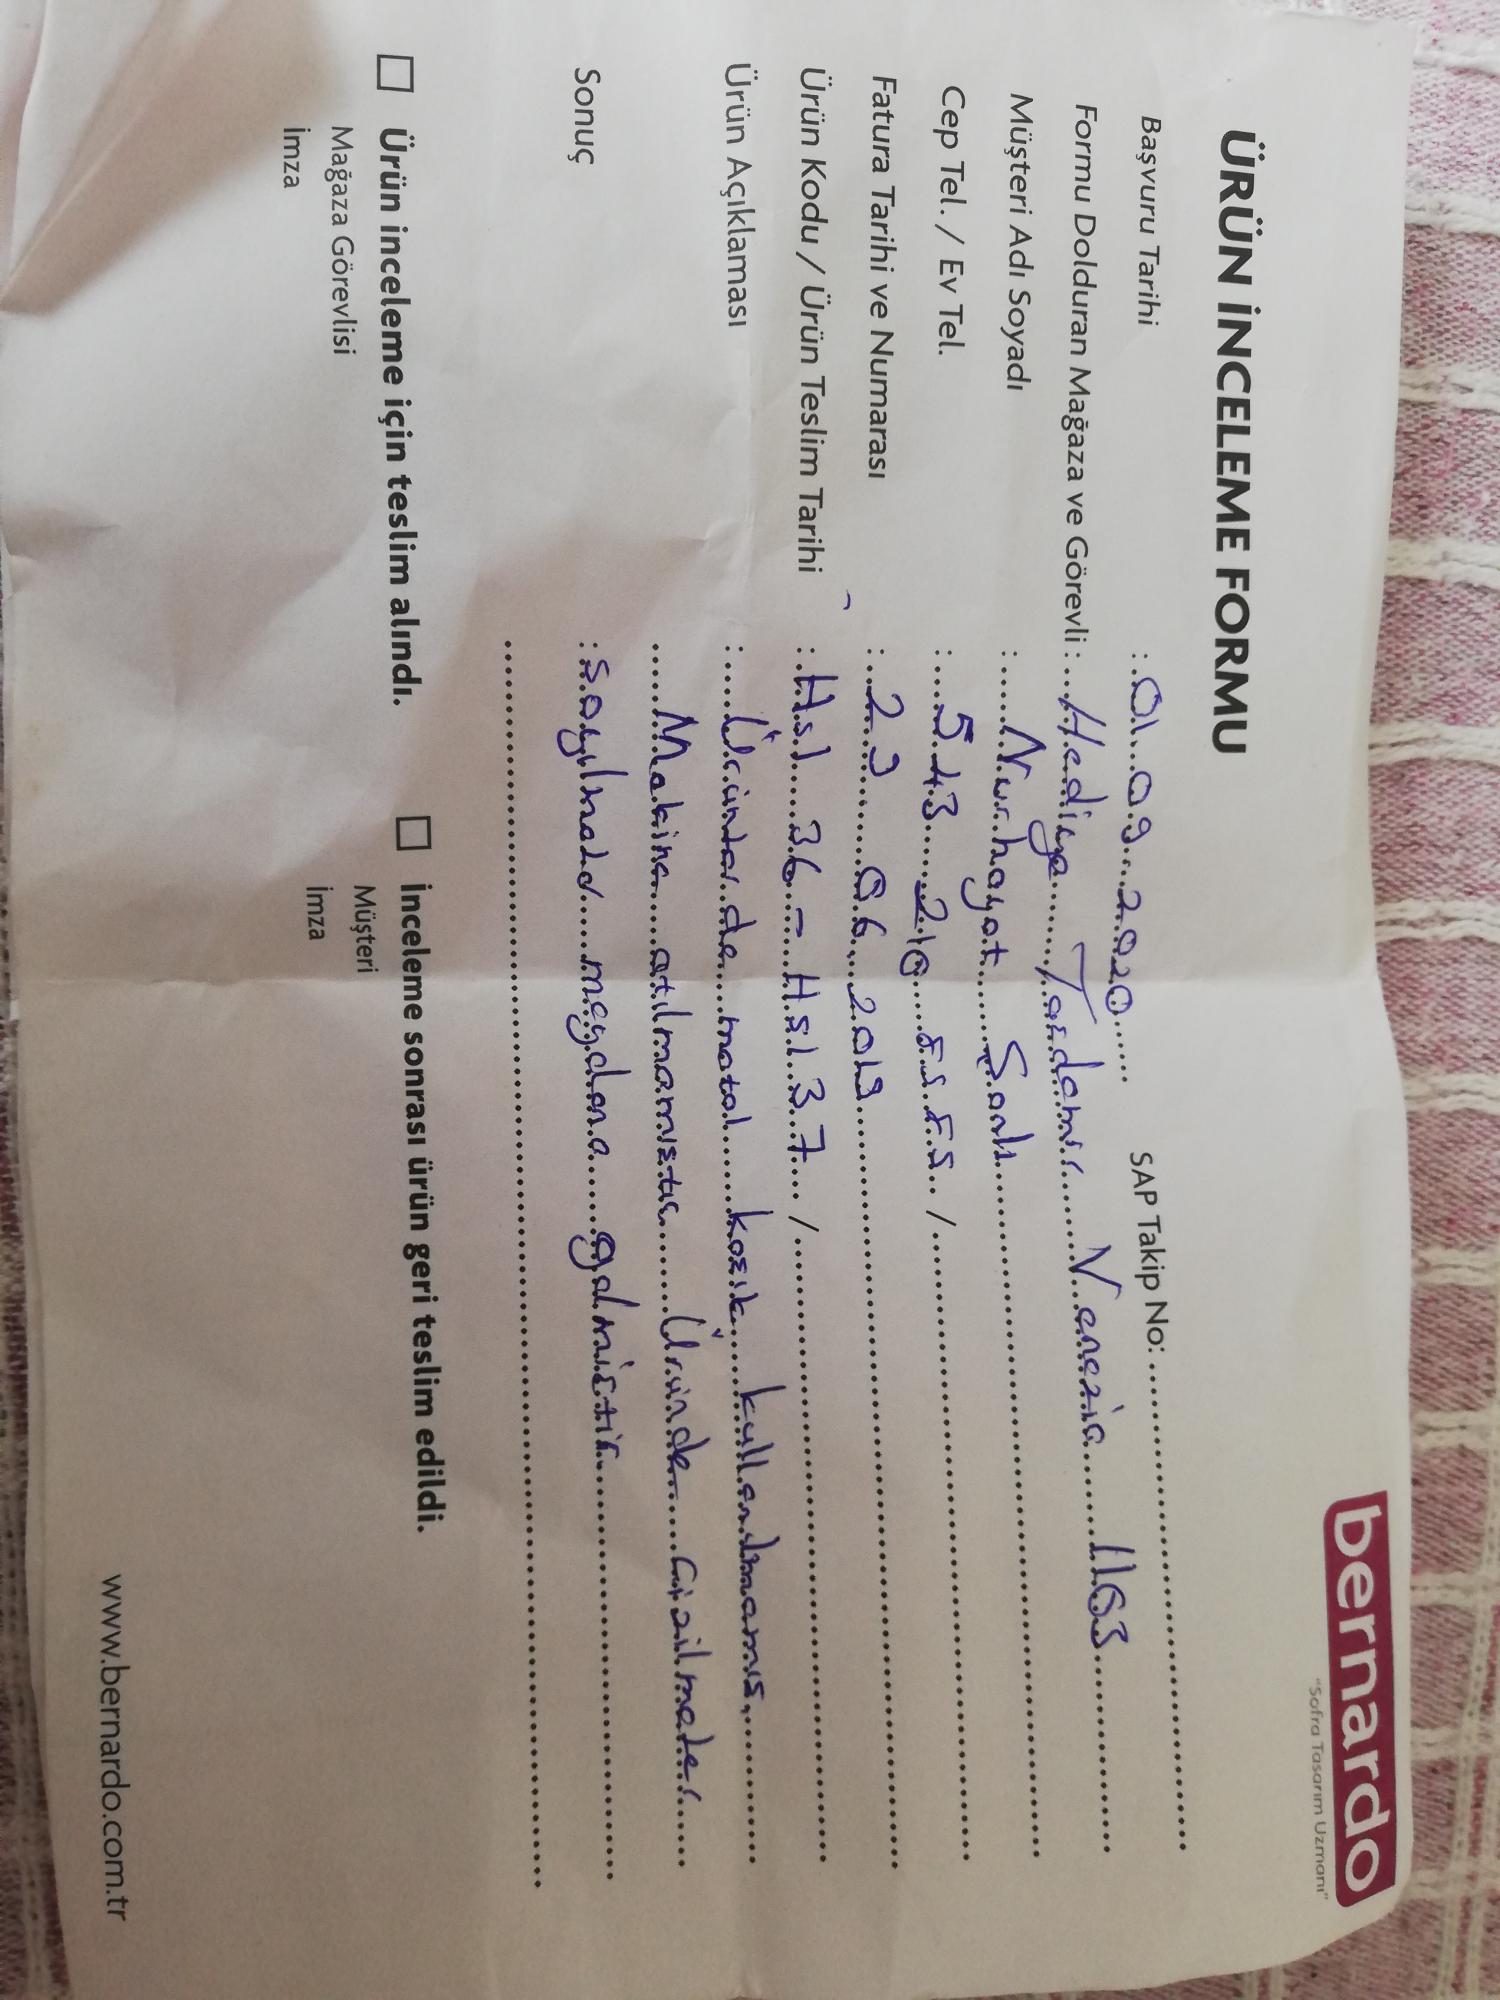 bernardo
"Sofra Tasarım Uzmanı"
ÜRÜN İNCELEME FORMU
Başvuru Tarihi : 01.09.2020 SAP Takip No:
Formu Dolduran Mağaza ve Görevli : Hediye Taşdemir Venezia 1163
Müşteri Adı Soyadı : Nurhayat Sarılı
Cep Tel. / Ev Tel. : 543 210 55 55 /
Fatura Tarihi ve Numarası : 29 06 2019
Ürün Kodu / Ürün Teslim Tarihi : Hsl 36 - Hsl 37 /
Ürün Açıklaması : Üründe metal kaşık kullanılmamış,
Makina atılmamıştır Üründe çizilmeler
Sonuç : soyulmalar meydana gelmiştir.
Ürün inceleme için teslim alındı. İnceleme sonrası ürün geri teslim edildi.
Mağaza Görevlisi Müşteri
İmza İmza
www.bernardo.com.tr